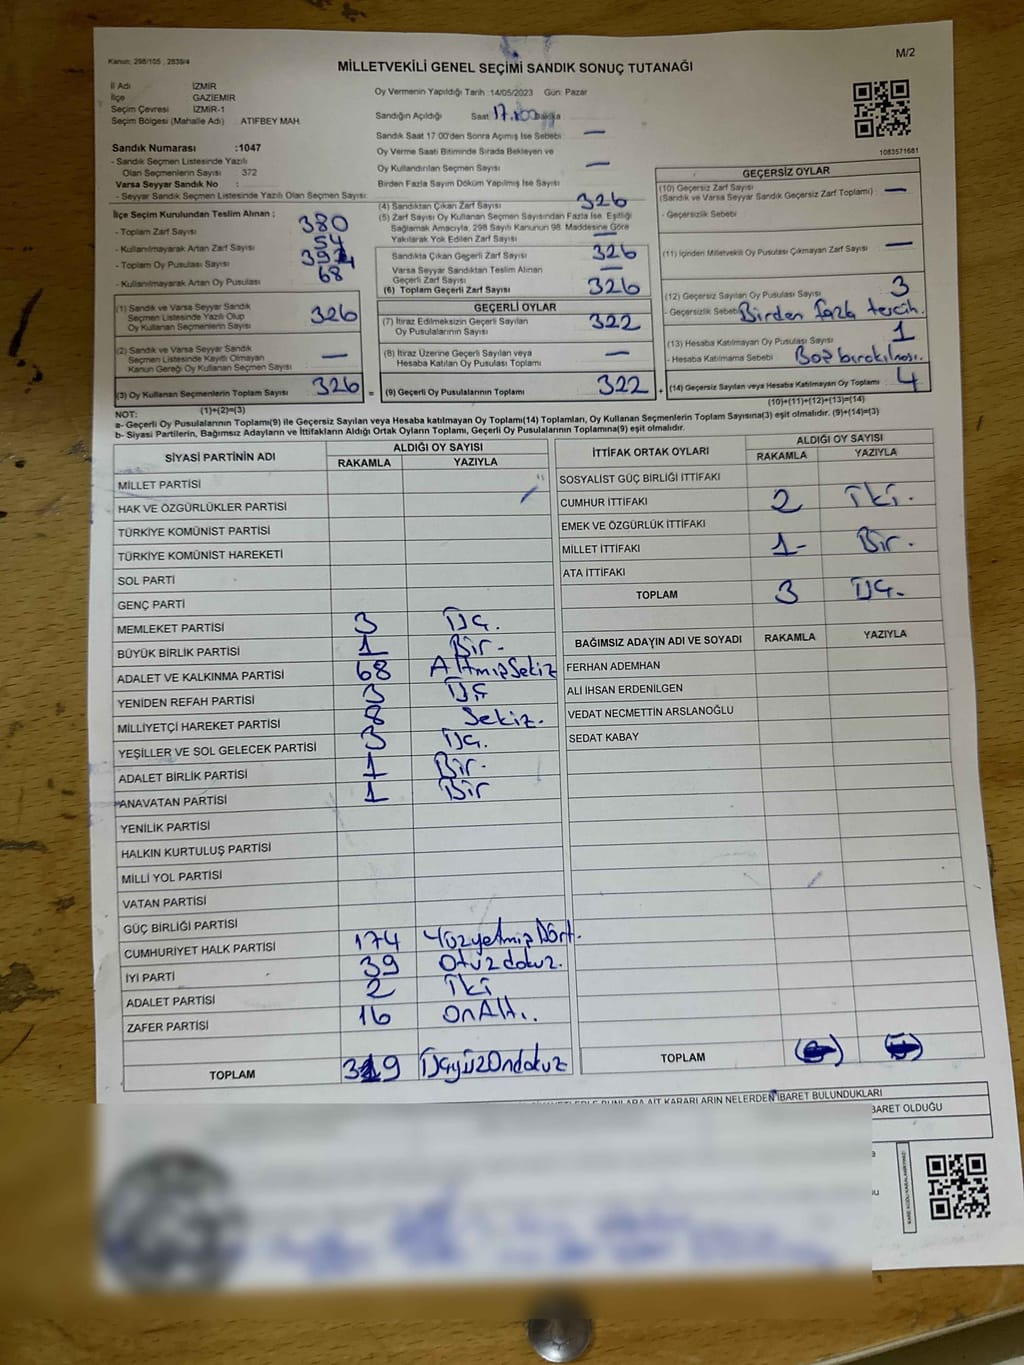 Kanun: 298/105 , 2839/4
M/2
MİLLETVEKİLİ GENEL SEÇİMİ SANDIK SONUÇ TUTANAĞI
İl Adı İZMİR
İlçe GAZİEMİR
Seçim Çevresi İZMİR-1
Seçim Bölgesi (Mahalle Adı) ATIFBEY MAH.
Sandık Numarası :1047
- Sandık Seçmen Listesinde Yazılı
Olan Seçmenlerin Sayısı 372
Varsa Seyyar Sandık No :
- Seyyar Sandık Seçmen Listesinde Yazılı Olan Seçmen Sayısı:
Oy Vermenin Yapıldığı Tarih :14/05/2023 Gün: Pazar
Sandığın Açıldığı Saat 17. Dakika
Sandık Saat 17:00'den Sonra Açımış İse Sebebi —
Oy Verme Saati Bitiminde Sırada Bekleyen ve
Oy Kullandırılan Seçmen Sayısı —
Birden Fazla Sayım Döküm Yapılmış İse Sayısı
1083571681
İlçe Seçim Kurulundan Teslim Alınan ;
- Toplam Zarf Sayısı 380
- Kullanılmayarak Artan Zarf Sayısı 54
- Toplam Oy Pusulası Sayısı
- Kullanılmayarak Artan Oy Pusulası 68
(1) Sandık ve Varsa Seyyar Sandık
Seçmen Listesinde Yazılı Olup
Oy Kullanan Seçmenlerin Sayısı 326
(2) Sandık ve Varsa Seyyar Sandık
Seçmen Listesinde Kayıtlı Olmayan
Kanun Gereği Oy Kullanan Seçmen Sayısı —
(3) Oy Kullanan Seçmenlerin Toplam Sayısı 326 =
(1)+(2)=(3)
(4) Sandıktan Çıkan Zarf Sayısı 326
(5) Zarf Sayısı Oy Kullanan Seçmen Sayısından Fazla İse, Eşitliği
Sağlamak Amacıyla, 298 Sayılı Kanunun 98. Maddesine Göre
Yakılarak Yok Edilen Zarf Sayısı —
Sandıkta Çıkan Geçerli Zarf Sayısı 326
Varsa Seyyar Sandıktan Teslim Alınan
Geçerli Zarf Sayısı —
(6) Toplam Geçerli Zarf Sayısı 326
GEÇERLİ OYLAR
(7) İtiraz Edilmeksizin Geçerli Sayılan
Oy Pusulalarının Sayısı 322
(8) İtiraz Üzerine Geçerli Sayılan veya
Hesaba Katılan Oy Pusulası Toplamı —
(9) Geçerli Oy Pusulalarının Toplamı 322 +
GEÇERSİZ OYLAR
(10) Geçersiz Zarf Sayısı
(Sandık ve Varsa Seyyar Sandık Geçersiz Zarf Toplamı) —
- Geçersizlik Sebebi
(11) İçinden Milletvekili Oy Pusulası Çıkmayan Zarf Sayısı —
(12) Geçersiz Sayılan Oy Pusulası Sayısı 3
- Geçersizlik Sebebi Birden fazla tercih.
(13) Hesaba Katılmayan Oy Pusulası Sayısı 1
- Hesaba Katılmama Sebebi Boş bırakılması.
(14) Geçersiz Sayılan veya Hesaba Katılmayan Oy Toplamı 4
(10)+(11)+(12)+(13)=(14)
NOT:
a- Geçerli Oy Pusulalarının Toplamı(9) ile Geçersiz Sayılan veya Hesaba katılmayan Oy Toplamı(14) Toplamları, Oy Kullanan Seçmenlerin Toplam Sayısına(3) eşit olmalıdır. (9)+(14)=(3)
b- Siyasi Partilerin, Bağımsız Adayların ve İttifakların Aldığı Ortak Oyların Toplamı, Geçerli Oy Pusulalarının Toplamına(9) eşit olmalıdır.
SİYASİ PARTİNİN ADI ALDIĞI OY SAYISI
RAKAMLA YAZIYLA
MİLLET PARTİSİ
HAK VE ÖZGÜRLÜKLER PARTİSİ
TÜRKİYE KOMÜNİST PARTİSİ
TÜRKİYE KOMÜNİST HAREKETİ
SOL PARTİ
GENÇ PARTİ
MEMLEKET PARTİSİ 3 Üç.
BÜYÜK BİRLİK PARTİSİ 1 Bir.
ADALET VE KALKINMA PARTİSİ 68 AltmışSekiz
YENİDEN REFAH PARTİSİ 3 Üç
MİLLİYETÇİ HAREKET PARTİSİ 8 Sekiz.
YEŞİLLER VE SOL GELECEK PARTİSİ 3 Üç.
ADALET BİRLİK PARTİSİ 1 Bir.
ANAVATAN PARTİSİ 1 Bir
YENİLİK PARTİSİ
HALKIN KURTULUŞ PARTİSİ
MİLLİ YOL PARTİSİ
VATAN PARTİSİ
GÜÇ BİRLİĞİ PARTİSİ
CUMHURİYET HALK PARTİSİ 174 YüzyetmişDört.
İYİ PARTİ 39 Otuz dokuz.
ADALET PARTİSİ 2 İki
ZAFER PARTİSİ 16 OnAltı.
TOPLAM 319 ÜçyüzOndokuz
İTTİFAK ORTAK OYLARI ALDIĞI OY SAYISI
RAKAMLA YAZIYLA
SOSYALİST GÜÇ BİRLİĞİ İTTİFAKI
CUMHUR İTTİFAKI 2 İki.
EMEK VE ÖZGÜRLÜK İTTİFAKI
MİLLET İTTİFAKI 1- Bir.
ATA İTTİFAKI
TOPLAM 3 Üç.
BAĞIMSIZ ADAYIN ADI VE SOYADI RAKAMLA YAZIYLA
FERHAN ADEMHAN
ALİ İHSAN ERDENİLGEN
VEDAT NECMETTİN ARSLANOĞLU
SEDAT KABAY
TOPLAM
BUNLARA AİT KARARLARIN NELERDEN İBARET BULUNDUKLARI
BARET OLDUĞU